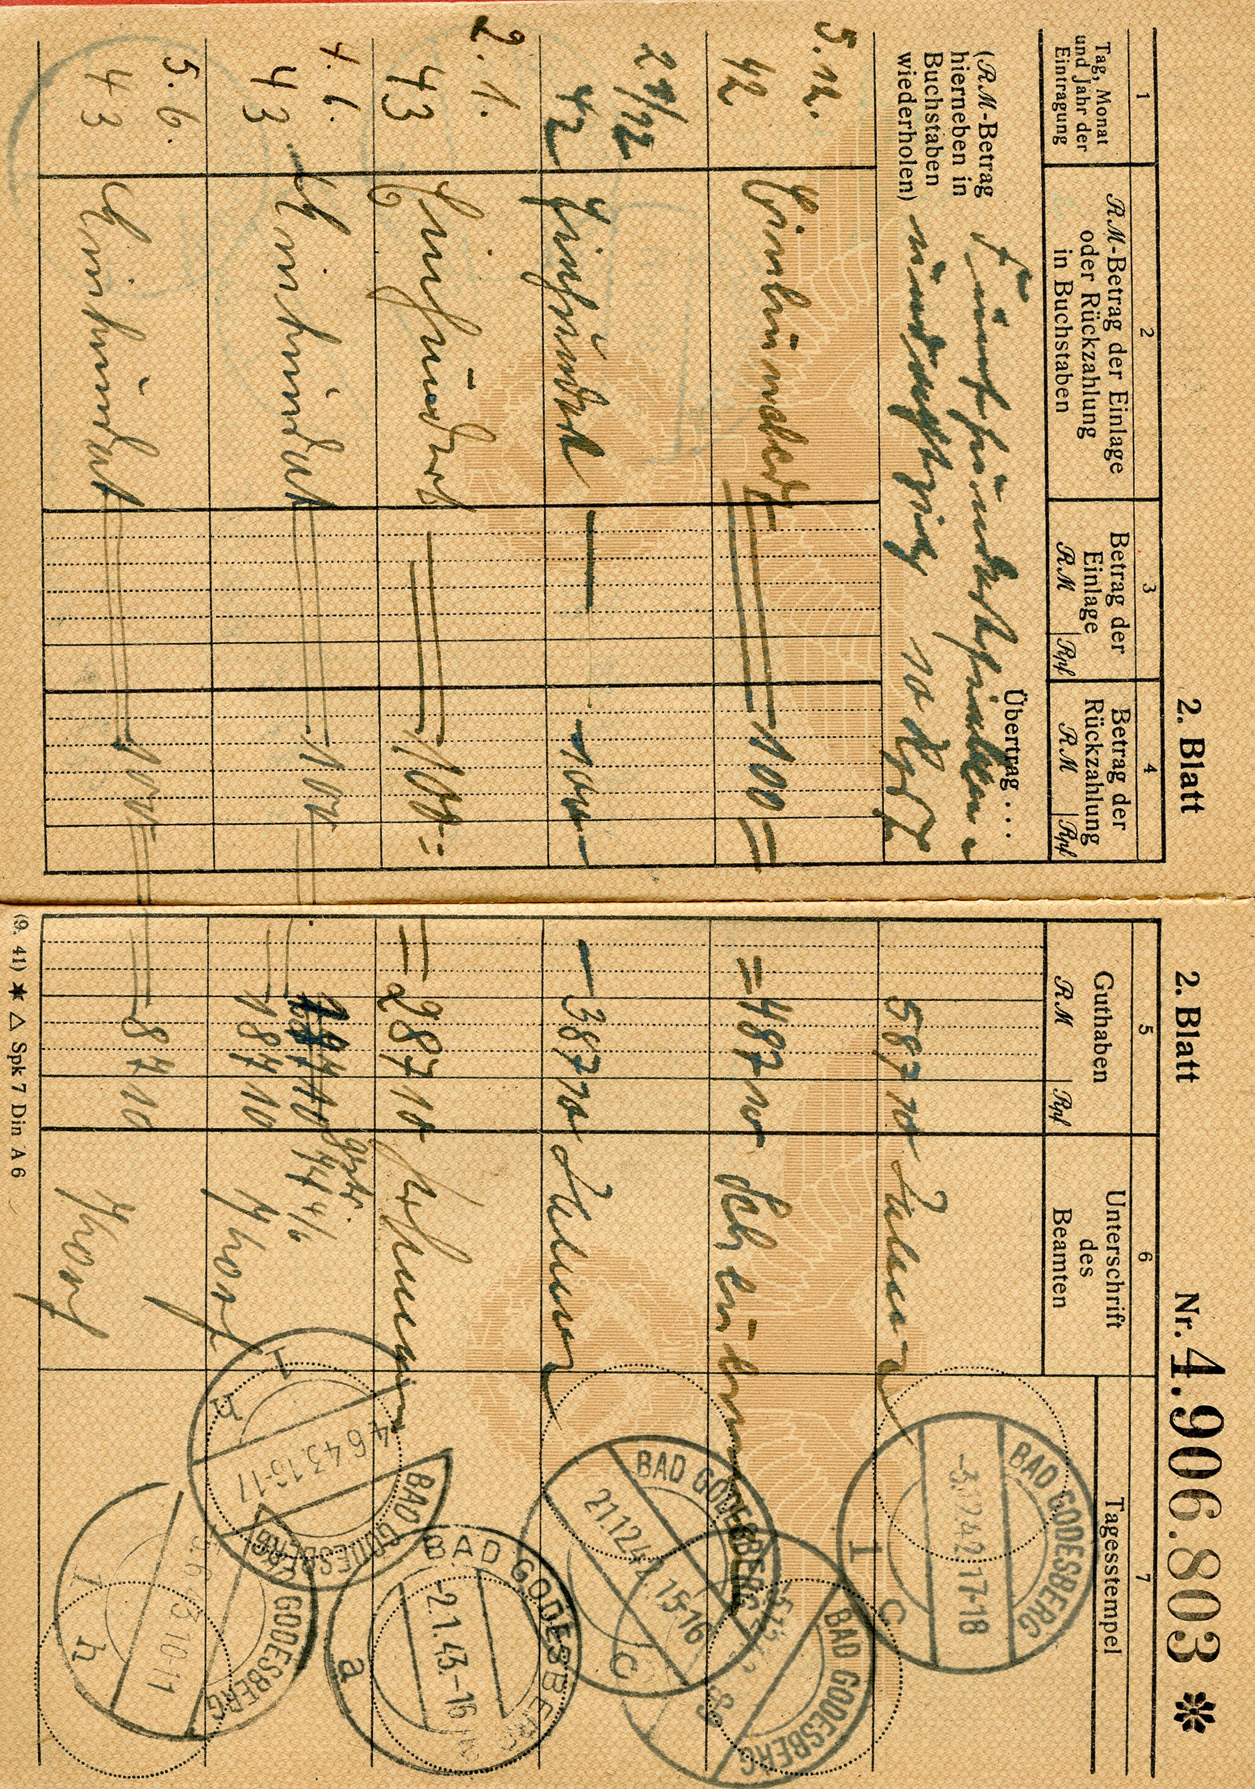 2. Blatt
1
Tag, Monat
und Jahr der
Eintragung
2
RM-Betrag der Einlage
oder Rückzahlung
in Buchstaben
3
Betrag der
Einlage
RM
Rpf
4
Betrag der
Rückzahlung
RM
Rpf
(RM-Betrag
hierneben in
Buchstaben
wiederholen)
Übertrag . . .
Fünfhundertsieben
undachtzig 10 Rpf
5. 12.
42
Einhundert
100 =
21/12
42
Einhundert
100
2. 1.
43
Einhundert
100 =
4. 6.
43
Einhundert
100
5. 6.
43
Einhundert
100
2. Blatt
Nr. 4.906.803 ✻
5
Guthaben
RM
Rpf
6
Unterschrift
des
Beamten
7
Tagesstempel
587 10
BAD GODESBERG
-5.12.42 17-18
1 c
= 487 10
BAD GODESBERG
387 10
BAD GODESBERG
21.12.42. 15-16
c
= 287 10
BAD GODESBERG
-2.1.43.-16
a
187 10
4/6
187 10
BAD GODESBERG
4.6.43.16-17
1 h
87 10
GODESBERG
5.6.43.10-11
1 h
(9. 41) ★ △ Spk 7 Din A 6